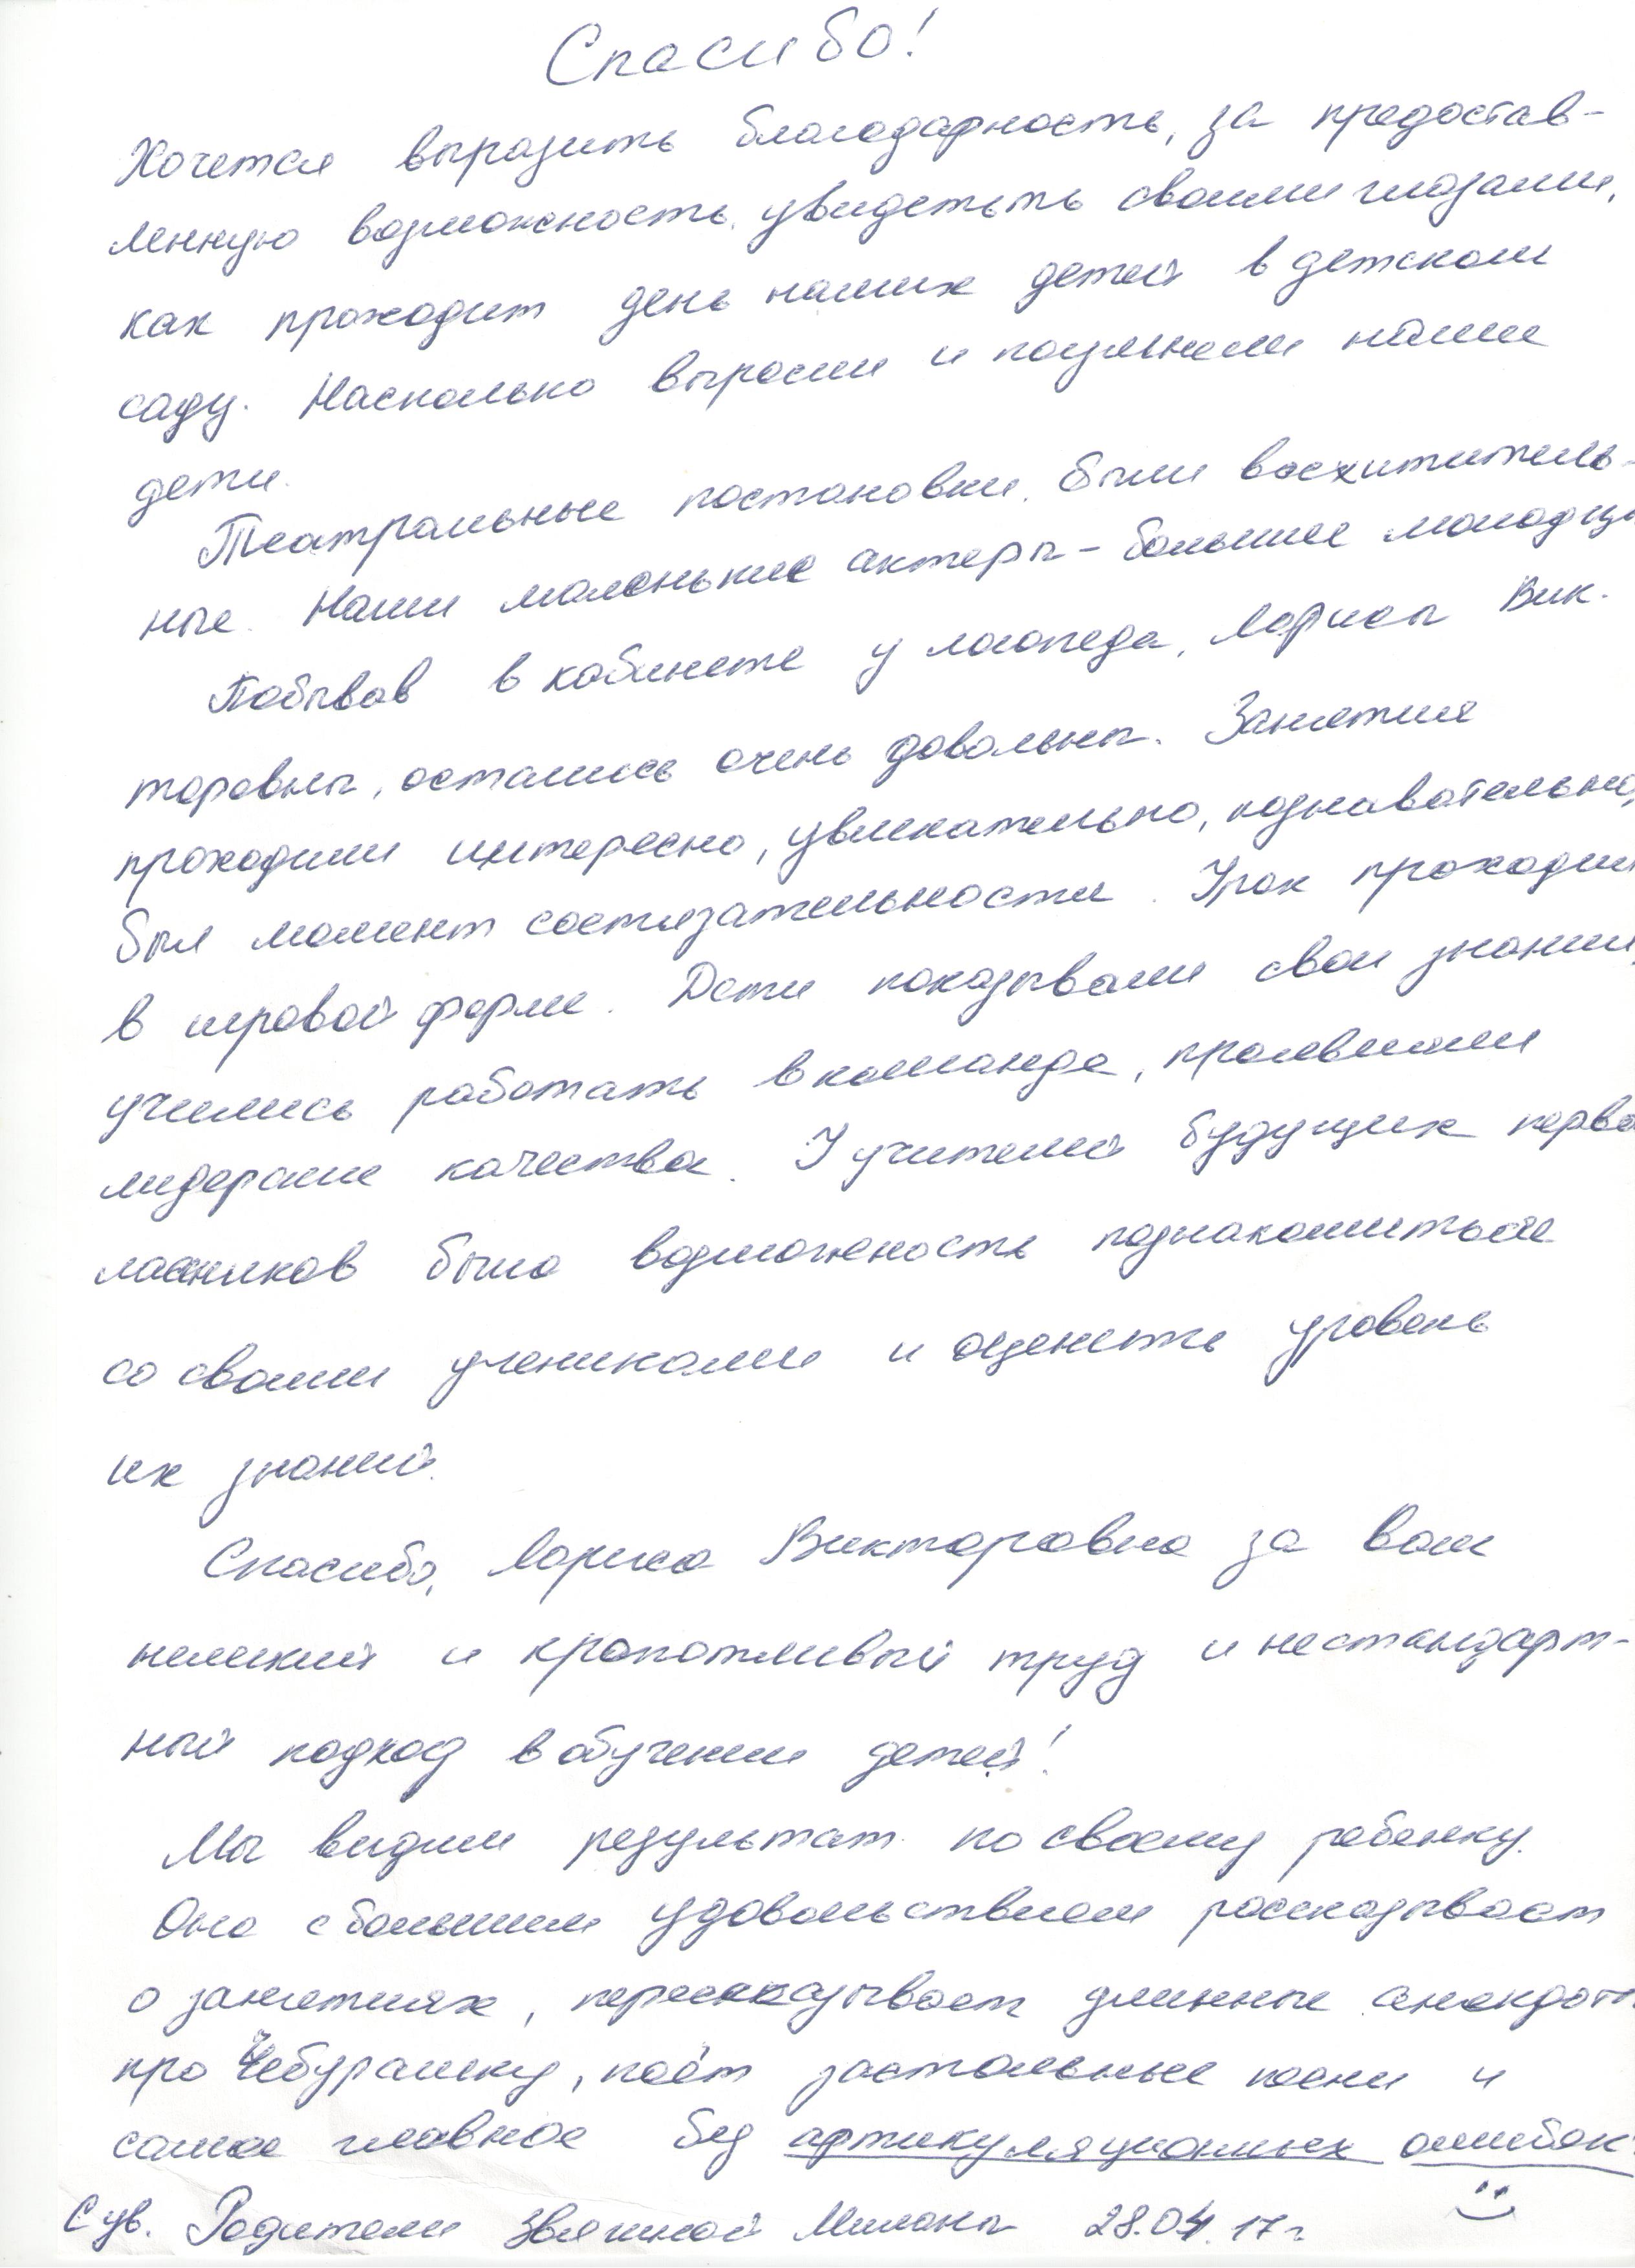 Спасибо!
Хочется выразить благодарность, за предостав-
ленную возможность, увидетьть своими глазами,
как проходит день наших детей в детском
саду. Насколько выросли и поумнели наши
дети.
Театральные постановки были восхититель-
ные. Наши маленькие актеры - большие молодцы
Побывав в кабинете у логопеда, Ларисы Вик-
торовны, остались очень довольны. Занятия
проходили интересно, увлекательно, познавательно,
был момент состязательности. Урок проходил
в игровой форме. Дети показывали свои знания,
учились работать в команде, проявляли
лидерские качества. У учителей будущих перво
лассников было возможность познакомиться
со своими учениками и оценить уровень
их знаний.
Спасибо, Лариса Викторовна за Ваш
нелегкий и кропотливый труд и нестандарт-
ный подход в обучении детей!
Мы видим результат по своему ребенку.
Она с большим удовольствием рассказывает
о занятиях, пересказывает длинные анекдоты
про Чебурашку, поёт застольные песни и
самое главное без артикуляционных ошибок.
С ув. Родители Звягиной Миланы 28.04.17г